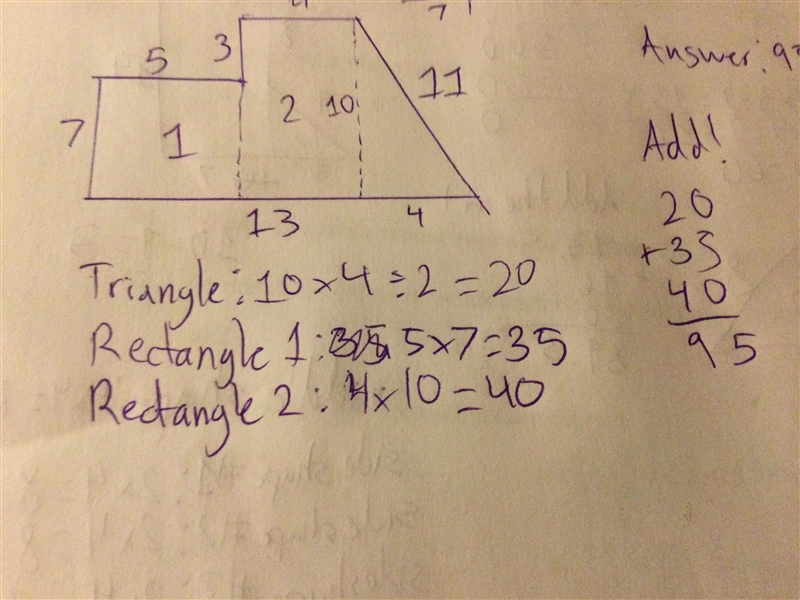 7
5
3
Answer: 9
7
1
2
10
11
Add!
13
4
20
+35
40
95
Triangle: 10 x 4 ÷ 2 = 20
Rectangle 1: 5 x 7 = 35
Rectangle 2: 4 x 10 = 40